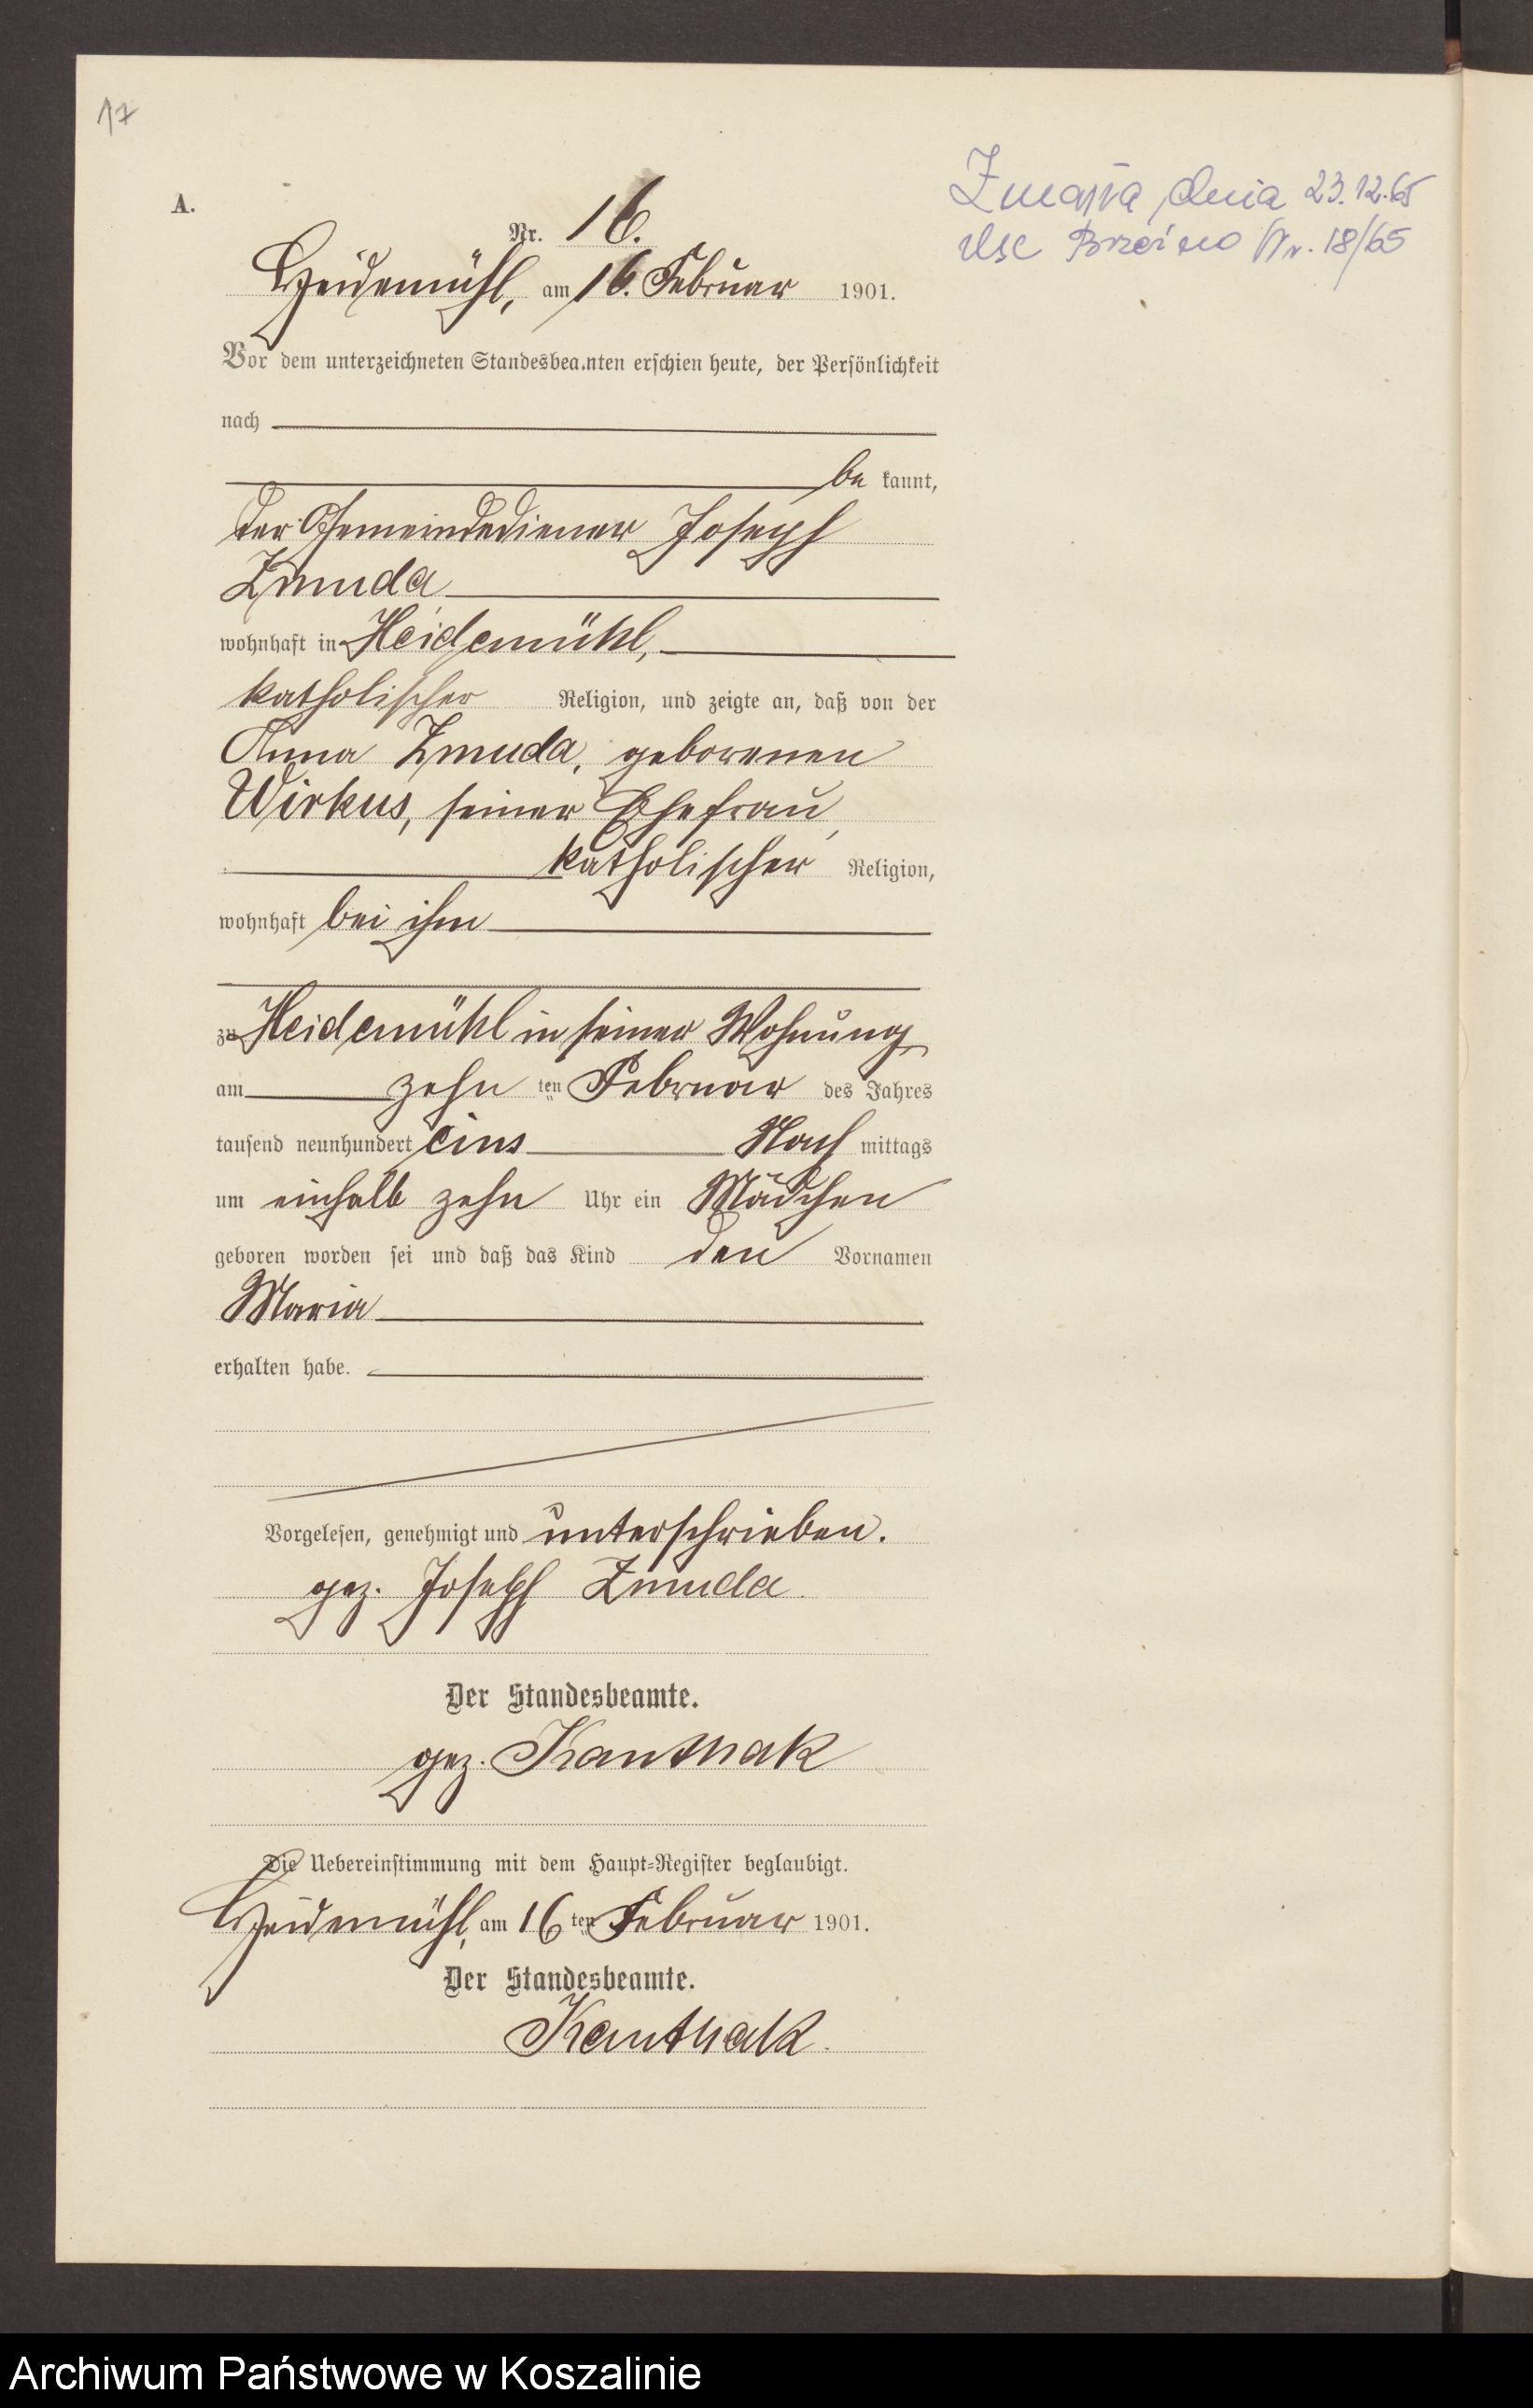 17
A.
Zmarła dnia 23.12.65
USC Brzeźno Nr. 18/65
Nr. 16.
Heidemühl, am 16. Februar 1901.
Vor dem unterzeichneten Standesbeamten erschien heute, der Persönlichkeit
nach
be kannt,
der Gemeindediener Joseph
Zmuda
wohnhaft in Heidemühl,
katholischer Religion, und zeigte an, daß von der
Anna Zmuda, geborenen
Wirkus, seiner Ehefrau,
katholischer Religion,
wohnhaft bei ihm
zu Heidemühl in seiner Wohnung
am zehn ten Februar des Jahres
tausend neunhundert eins Nach mittags
um einhalb zehn Uhr ein Mädchen
geboren worden sei und daß das Kind den Vornamen
Maria
erhalten habe.
Vorgelesen, genehmigt und unterschrieben.
gez. Joseph Zmuda.
Der Standesbeamte.
gez. Kanthak
Die Uebereinstimmung mit dem Haupt-Register beglaubigt.
Heidemühl, am 16 ten Februar 1901.
Der Standesbeamte.
Kanthak.
Archiwum Państwowe w Koszalinie